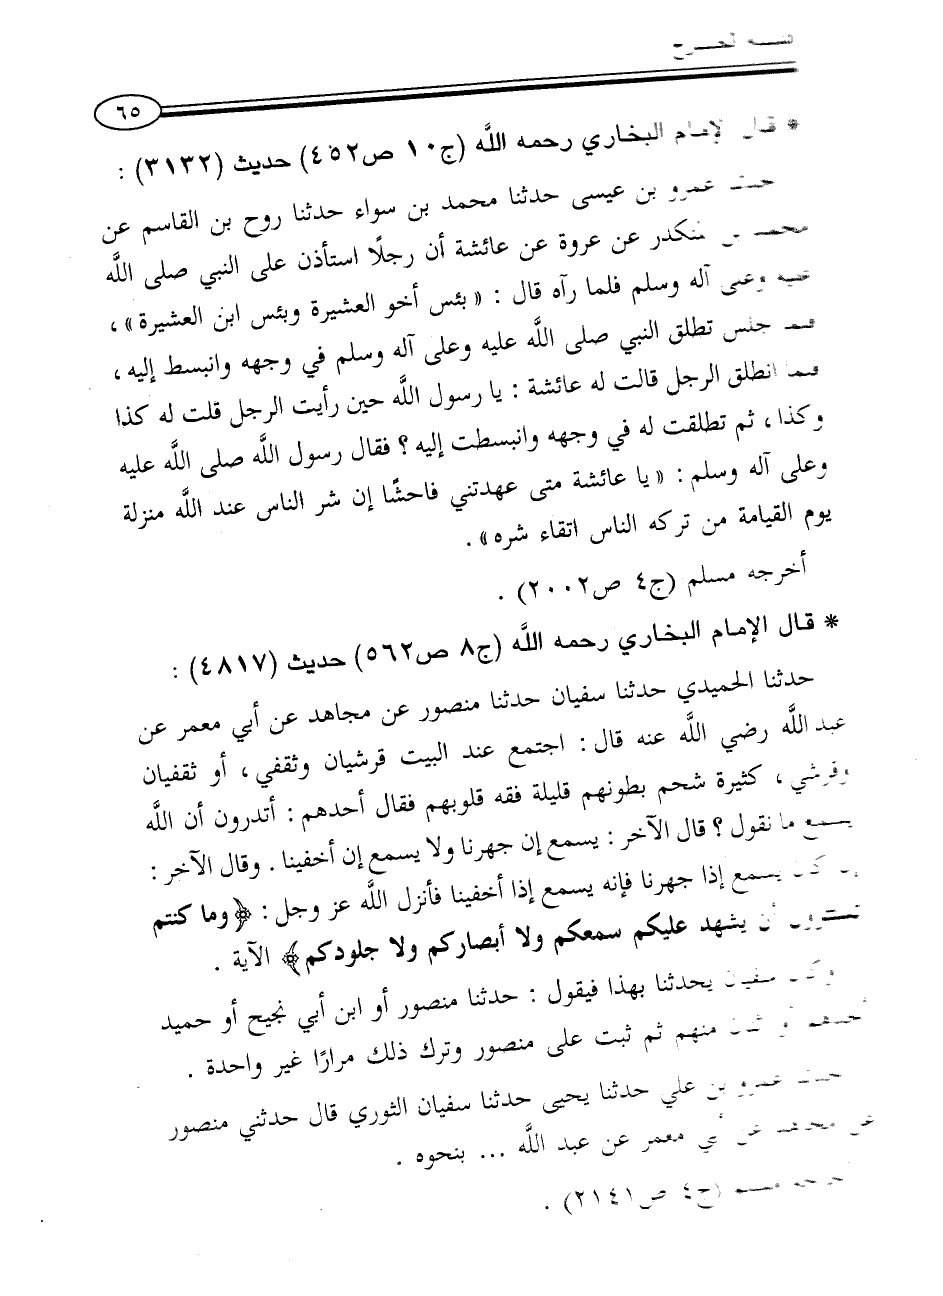 ٦٥
* قال الإمام البخاري رحمه الله (ج١٠ ص٤٥٢) حديث (٣١٣٢) :
عمرو بن عيسى حدثنا محمد بن سواء حدثنا روح بن القاسم عن
محمد بن المنكدر عن عروة عن عائشة أن رجلًا استأذن على النبي صلى الله
عليه وعلى آله وسلم فلما رآه قال : « بئس أخو العشيرة وبئس ابن العشيرة » ،
فلما جلس تطلق النبي صلى الله عليه وعلى آله وسلم في وجهه وانبسط إليه ،
فلما انطلق الرجل قالت له عائشة : يا رسول الله حين رأيت الرجل قلت له كذا
وكذا ، ثم تطلقت له في وجهه وانبسطت إليه ؟ فقال رسول الله صلى الله عليه
وعلى آله وسلم : « يا عائشة متى عهدتني فاحشًا إن شر الناس عند الله منزلة
يوم القيامة من تركه الناس اتقاء شره » .
أخرجه مسلم (ج٤ ص٢٠٠٢) .
* قال الإمام البخاري رحمه الله (ج٨ ص٥٦٢) حديث (٤٨١٧) :
حدثنا الحميدي حدثنا سفيان حدثنا منصور عن مجاهد عن أبي معمر عن
عبد الله رضي الله عنه قال : اجتمع عند البيت قرشيان وثقفي ، أو ثقفيان
وقرشي ، كثيرة شحم بطونهم قليلة فقه قلوبهم فقال أحدهم : أتدرون أن الله
يسمع ما نقول ؟ قال الآخر : يسمع إن جهرنا ولا يسمع إن أخفينا . وقال الآخر :
إن كان يسمع إذا جهرنا فإنه يسمع إذا أخفينا فأنزل الله عز وجل : ﴿وما كنتم
تستترون أن يشهد عليكم سمعكم ولا أبصاركم ولا جلودكم﴾ الآية .
وكان سفيان يحدثنا بهذا فيقول : حدثنا منصور أو ابن أبي نجيح أو حميد
أحدهم أو اثنان منهم ثم ثبت على منصور وترك ذلك مرارًا غير واحدة .
حدثنا عمرو بن علي حدثنا يحيى حدثنا سفيان الثوري قال حدثني منصور
عن مجاهد عن أبي معمر عن عبد الله ... بنحوه .
مسلم (ج٤ ص٢١٤١) .